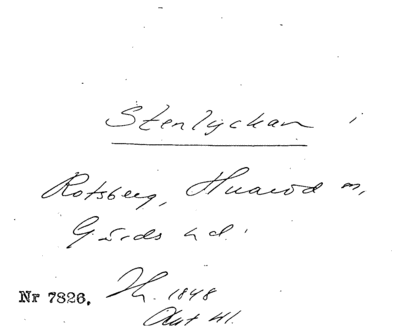 Stenlyckan i
Rotsberg, Huaröd sn,
Gärds hd.
Nr 7826. Th. 1848
Akt 41.